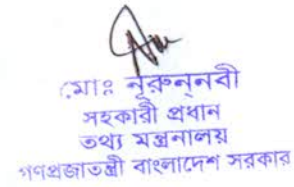 মোঃ নূরুননবী
সহকারী প্রধান
তথ্য মন্ত্রনালয়
গণপ্রজাতন্ত্রী বাংলাদেশ সরকার